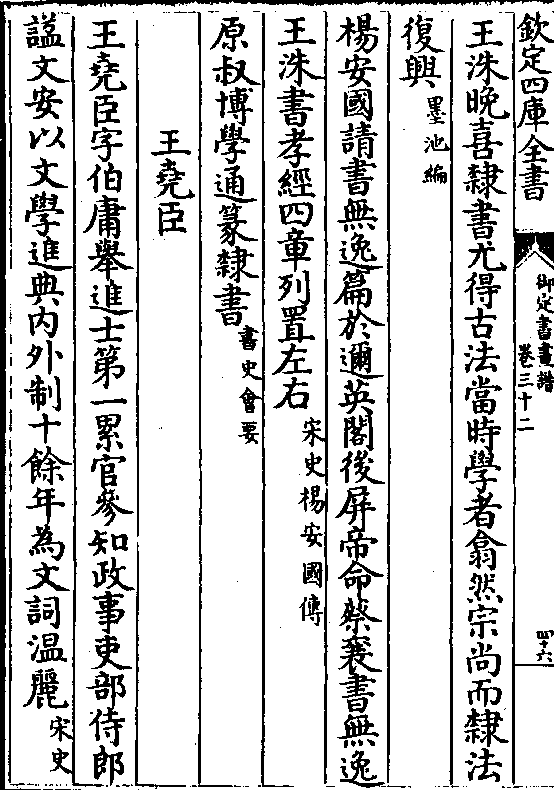 欽定四庫全書
御定書畫譜
卷三十二
四十六
王洙晚喜隸書尤得古法當時學者翕然宗尚而隸法
復興墨池編
楊安國請書無逸篇於邇英閣後屏帝命蔡襄書無逸
王洙書孝經四章列置左右宋史楊安國傳
原叔博學通篆隸書書史會要
王堯臣
王堯臣字伯庸舉進士第一累官參知政事吏部侍郎
諡文安以文學進典內外制十餘年為文詞溫麗宋史